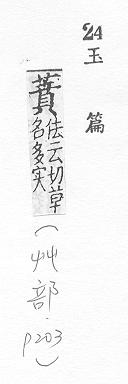 24 玉篇
蕡
佉云切草
名多实
(艸部 p203)